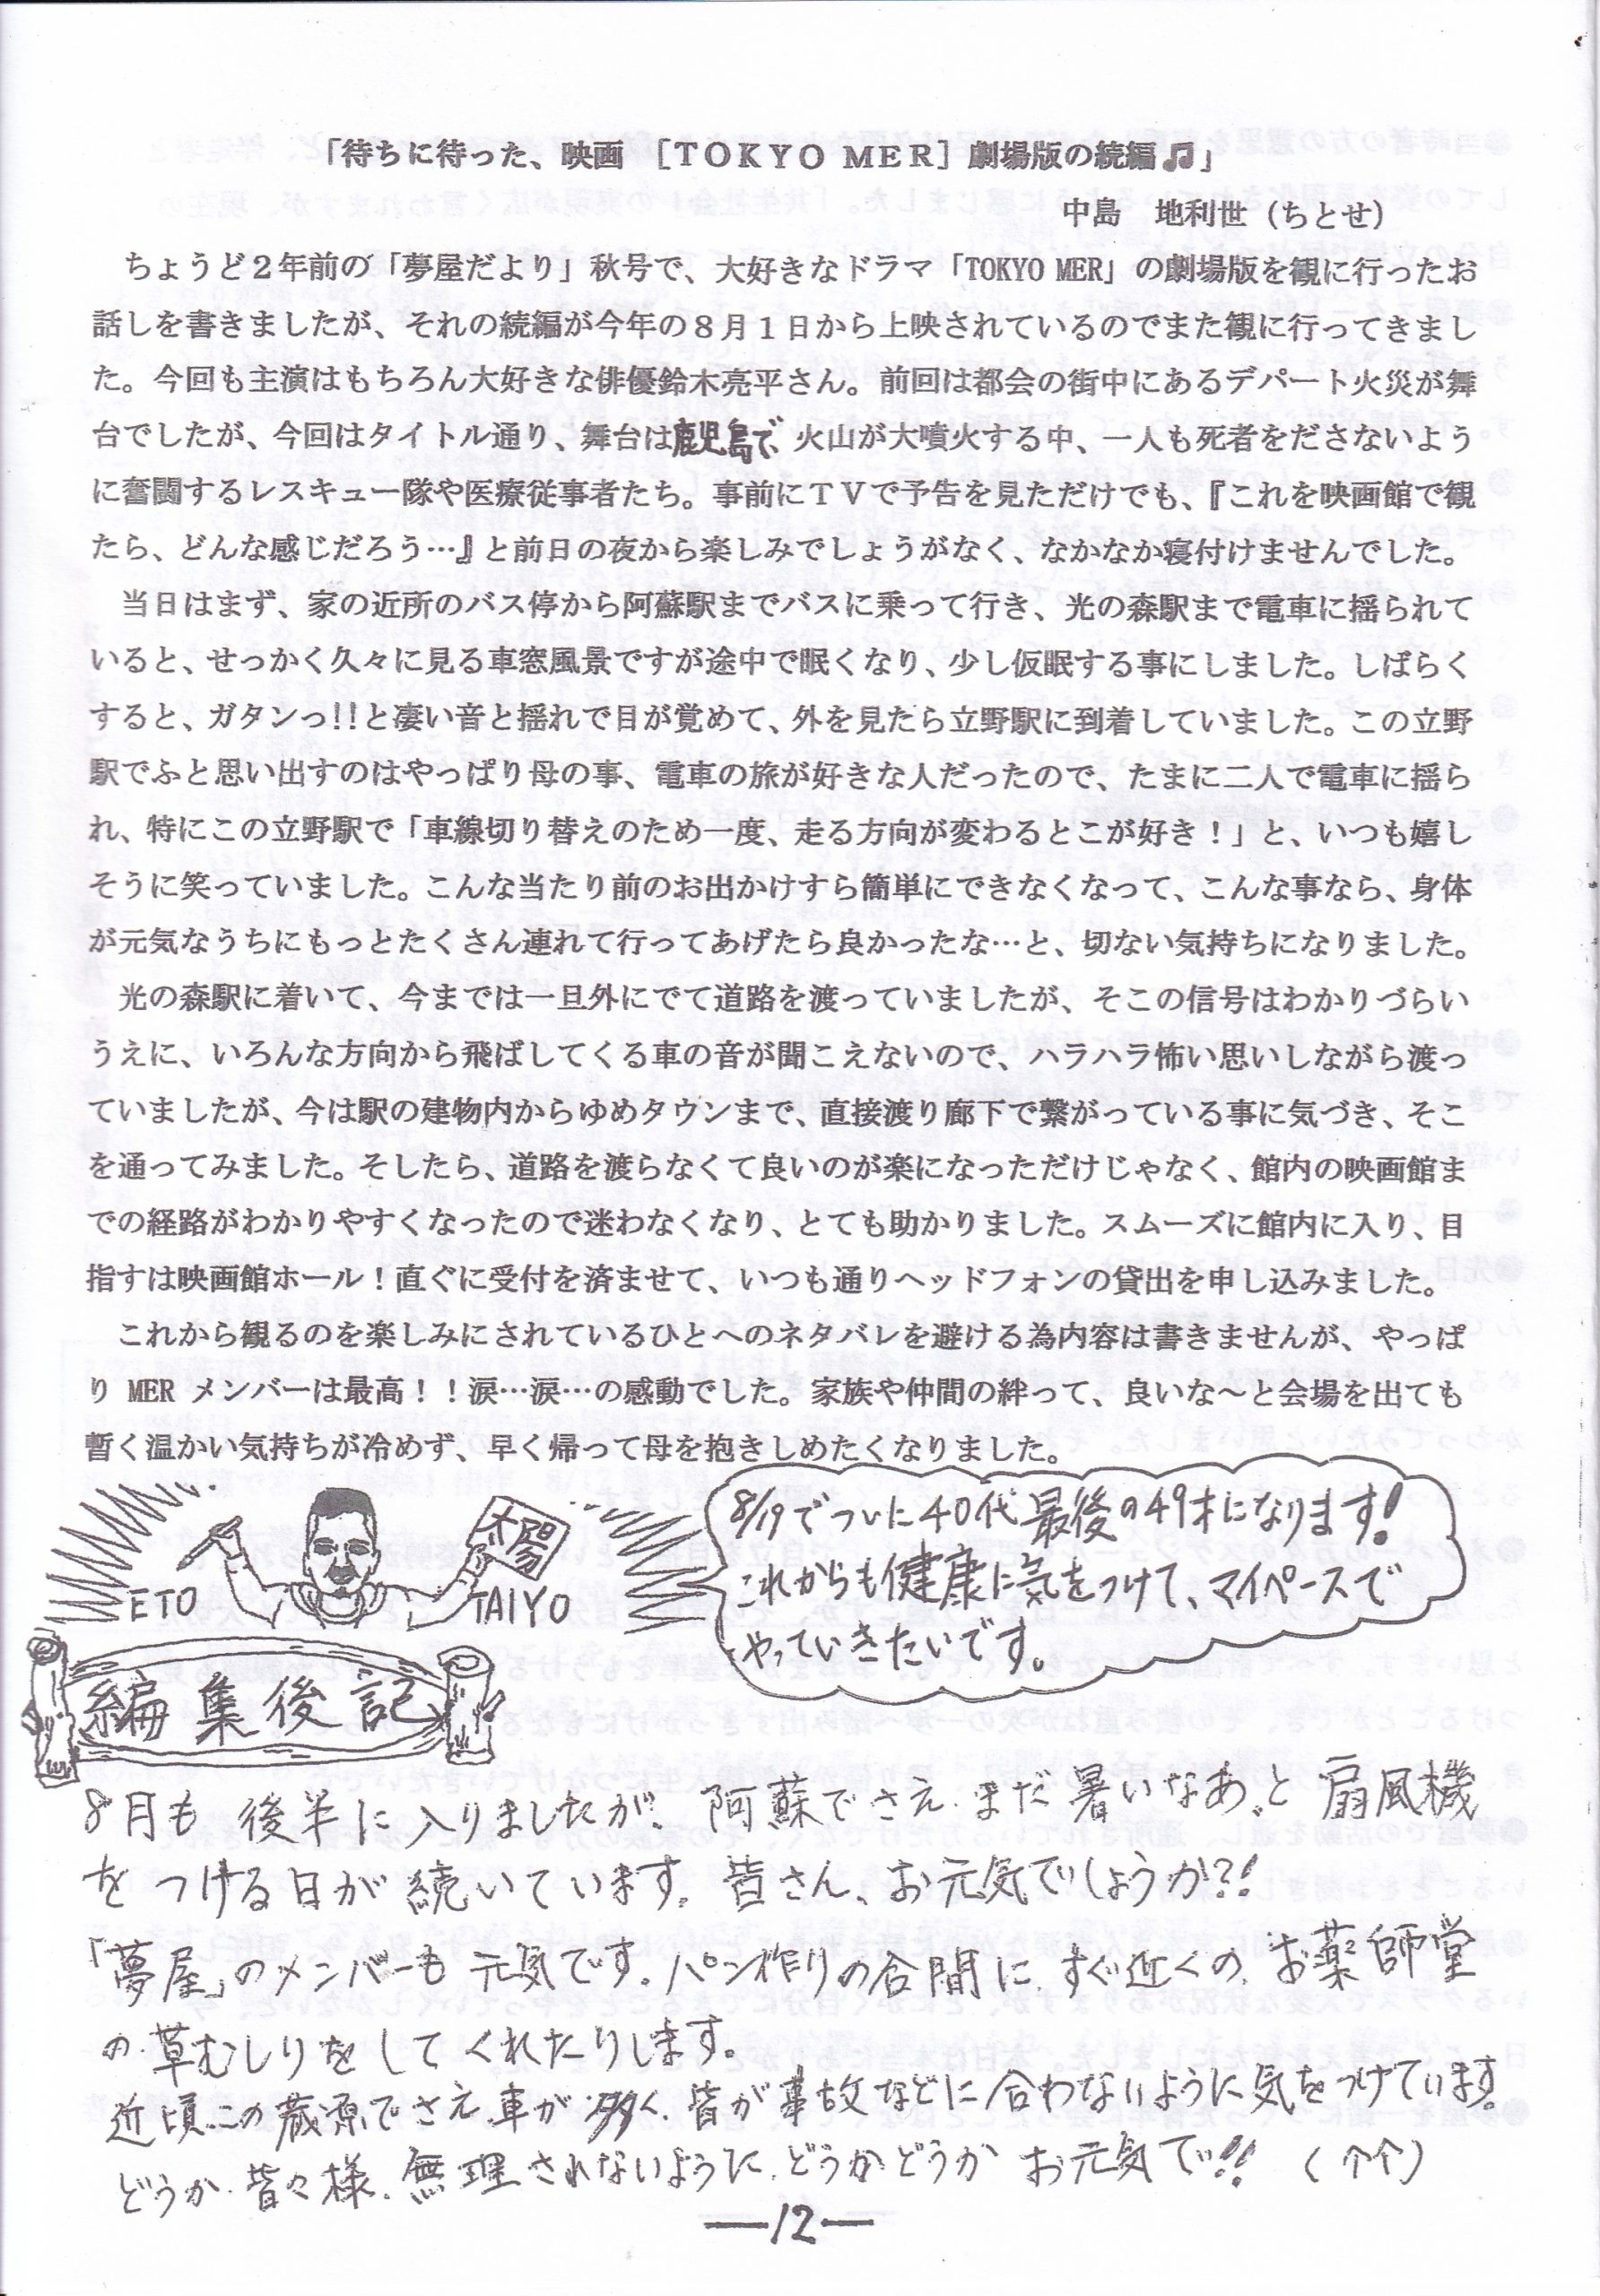 「待ちに待った、映画　［ＴＯＫＹＯ ＭＥＲ］劇場版の続編♫」
中島　地利世（ちとせ）
ちょうど２年前の「夢屋だより」秋号で、大好きなドラマ「TOKYO MER」の劇場版を観に行ったお
話しを書きましたが、それの続編が今年の８月１日から上映されているのでまた観に行ってきまし
た。今回も主演はもちろん大好きな俳優鈴木亮平さん。前回は都会の街中にあるデパート火災が舞
台でしたが、今回はタイトル通り、舞台は鹿児島で、火山が大噴火する中、一人も死者をださないよう
に奮闘するレスキュー隊や医療従事者たち。事前にＴＶで予告を見ただけでも、『これを映画館で観
たら、どんな感じだろう…』と前日の夜から楽しみでしょうがなく、なかなか寝付けませんでした。
当日はまず、家の近所のバス停から阿蘇駅までバスに乗って行き、光の森駅まで電車に揺られて
いると、せっかく久々に見る車窓風景ですが途中で眠くなり、少し仮眠する事にしました。しばらく
すると、ガタンっ!!と凄い音と揺れで目が覚めて、外を見たら立野駅に到着していました。この立野
駅でふと思い出すのはやっぱり母の事、電車の旅が好きな人だったので、たまに二人で電車に揺ら
れ、特にこの立野駅で「車線切り替えのため一度、走る方向が変わるとこが好き！」と、いつも嬉し
そうに笑っていました。こんな当たり前のお出かけすら簡単にできなくなって、こんな事なら、身体
が元気なうちにもっとたくさん連れて行ってあげたら良かったな…と、切ない気持ちになりました。
光の森駅に着いて、今までは一旦外にでて道路を渡っていましたが、そこの信号はわかりづらい
うえに、いろんな方向から飛ばしてくる車の音が聞こえないので、ハラハラ怖い思いしながら渡っ
ていましたが、今は駅の建物内からゆめタウンまで、直接渡り廊下で繋がっている事に気づき、そこ
を通ってみました。そしたら、道路を渡らなくて良いのが楽になっただけじゃなく、館内の映画館ま
での経路がわかりやすくなったので迷わなくなり、とても助かりました。スムーズに館内に入り、目
指すは映画館ホール！直ぐに受付を済ませて、いつも通りヘッドフォンの貸出を申し込みました。
これから観るのを楽しみにされているひとへのネタバレを避ける為内容は書きませんが、やっぱ
り MER メンバーは最高！！涙…涙…の感動でした。家族や仲間の絆って、良いな～と会場を出ても
暫く温かい気持ちが冷めず、早く帰って母を抱きしめたくなりました。
太陽
ETO
TAIYO
8/19でついに40代最後の49才になります!
これからも健康に気をつけて、マイペースで
やっていきたいです。
編集後記
8月も後半に入りましたが、阿蘇でさえ、まだ暑いなあ。と扇風機
をつける日が続いています。皆さん、お元気でしょうか?!
「夢屋」のメンバーも元気です。パン作りの合間に、すぐ近くの、お薬師堂
の草むしりをしてくれたりします。
近頃、この蔵原でさえ、車が多く、皆が事故などに合わないように気をつけています。
どうか、皆々様、無理されないように、どうかどうかお元気で!!
—12—